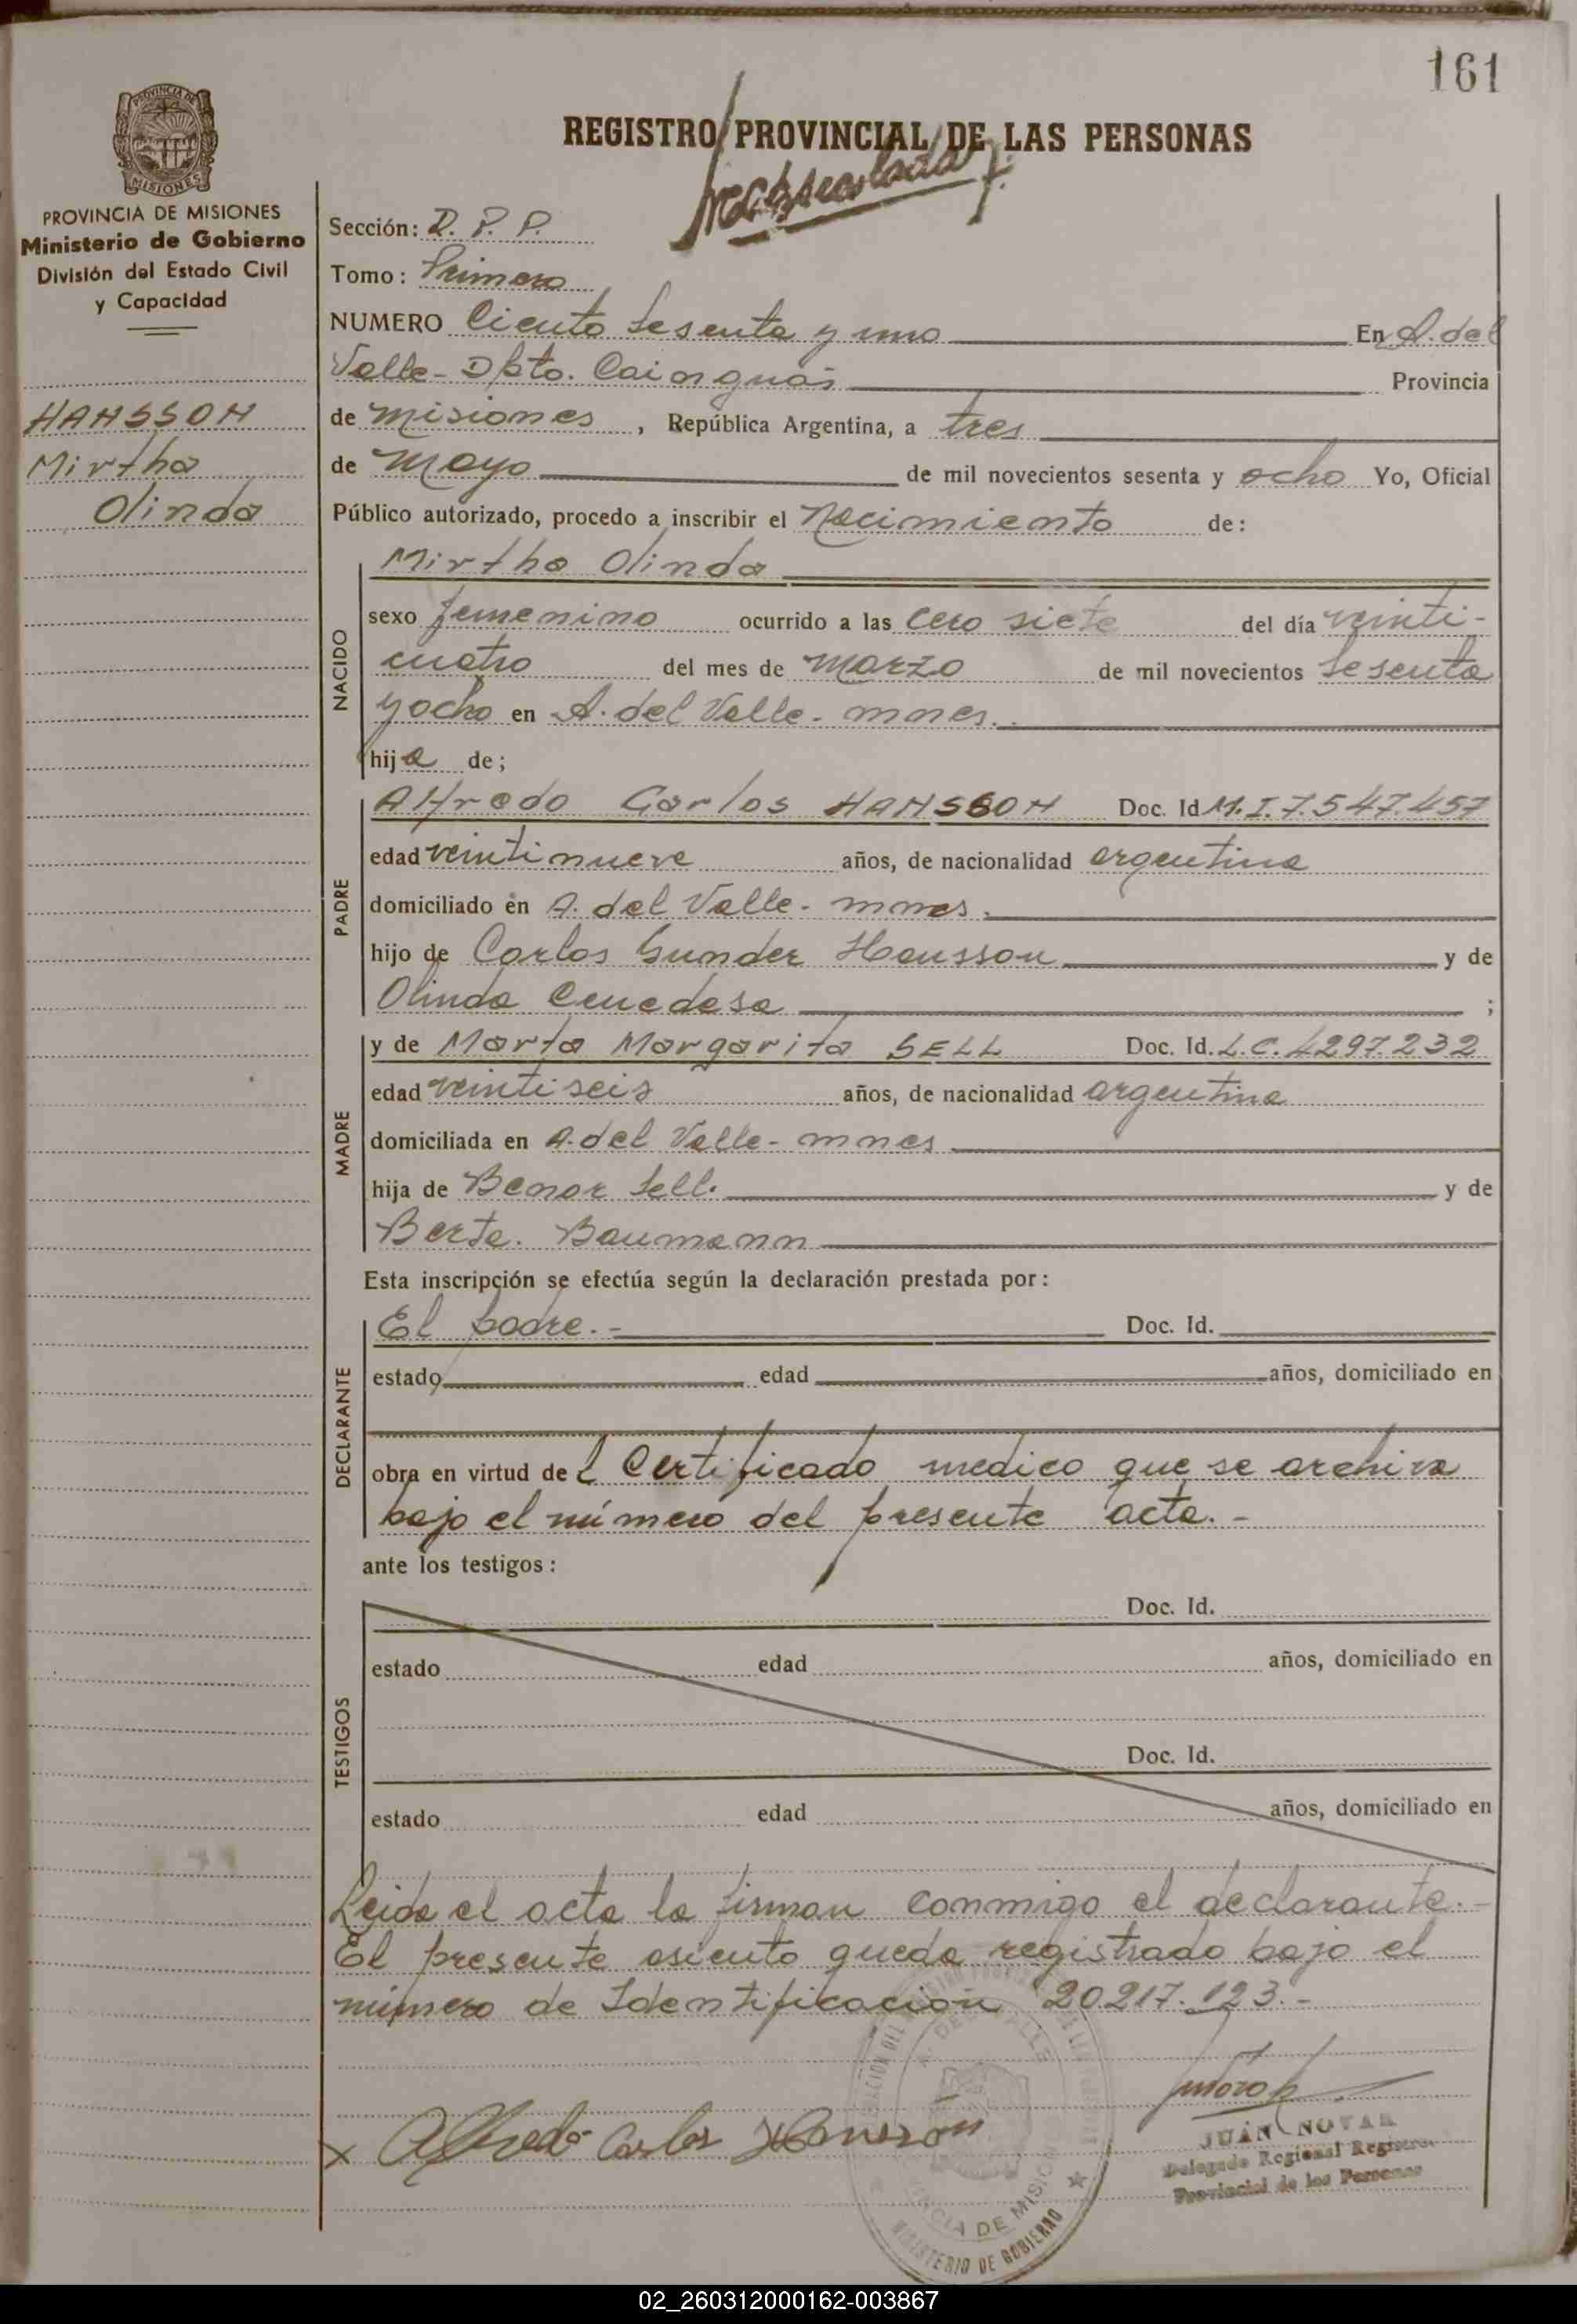 161
PROVINCIA DE
MISIONES
PROVINCIA DE MISIONES
Ministerio de Gobierno
División del Estado Civil
y Capacidad
HANSSON
Mirtha
Olinda
REGISTRO PROVINCIAL DE LAS PERSONAS
Sección: D. P. P.
Tomo: Primero
NUMERO Ciento Sesenta y uno En A. del
Valle - Dpto. Cainguás Provincia
de Misiones, República Argentina, a tres
de Mayo de mil novecientos sesenta y ocho Yo, Oficial
Público autorizado, procedo a inscribir el Nacimiento de:
NACIDO
Mirtha Olinda
sexo femenino ocurrido a las cero siete del día veinti-
cuatro del mes de Marzo de mil novecientos Sesenta
y ocho en A. del Valle - mnes.
hija de;
PADRE
Alfredo Carlos HANSSON Doc. Id M. I. 7.547.457
edad veintinueve años, de nacionalidad argentina
domiciliado en A. del Valle - mnes.
hijo de Carlos Gunder Hansson y de
Olinda Cenedesa ;
MADRE
y de Marta Margarita SELL Doc. Id. L.C. 4297.232
edad veintiseis años, de nacionalidad argentina
domiciliada en A. del Valle - mnes
hija de Benor Sell. y de
Berta. Baumann
Esta inscripción se efectúa según la declaración prestada por:
DECLARANTE
El padre.- Doc. Id.
estado edad años, domiciliado en
obra en virtud del Certificado medico que se archiva
bajo el número del presente acta.-
ante los testigos:
TESTIGOS
Doc. Id.
estado edad años, domiciliado en
Doc. Id.
estado edad años, domiciliado en
Leida el acta la firman conmigo el declarante.-
El presente asiento queda registrado bajo el
número de Identificación 20217.123.-
x Alfredo Carlos Hansson
JUAN NOVAK
Delegado Regional Registro
Provincial de las Personas
PROVINCIA DE MISIONES
MINISTERIO DE GOBIERNO
02_260312000162-003867